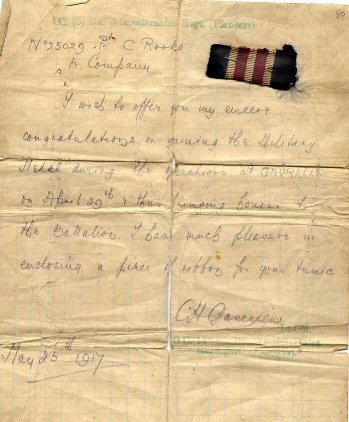 14th (S) Bn. Worcestershire Regt. (Pioneers)
80
No 25029 Pte C Rooke
A Company
I wish to offer you my sincere
congratulations on gaining the Military
Medal during the operations at GAVRELLE
on April 29th & thus bringing honour to
the Battalion. I have much pleasure in
enclosing a piece of ribbon for your tunic
C H
May 25th 1917